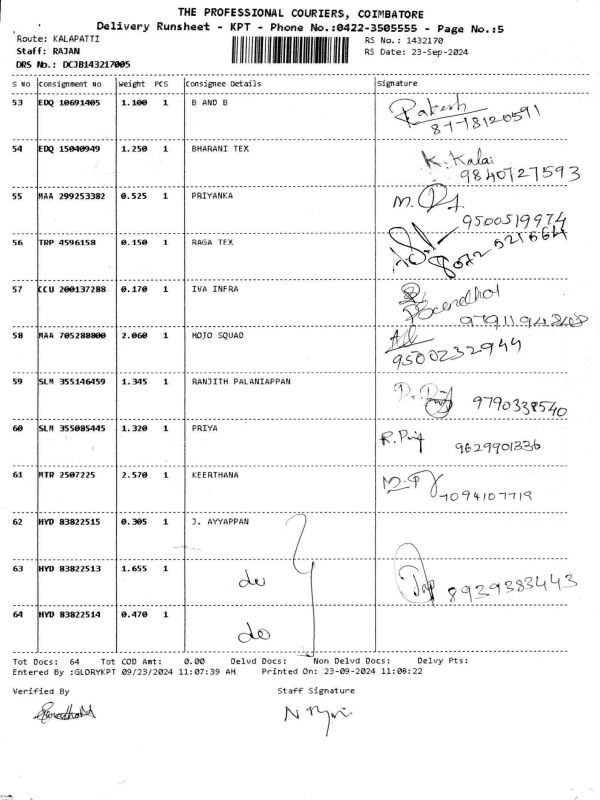 THE PROFESSIONAL COURIERS, COIMBATORE
Delivery Runsheet - KPT - Phone No.:0422-3505555 - Page No.:5
Route: KALAPATTI RS No.: 1432170
Staff: RAJAN RS Date: 23-Sep-2024
DRS No.: DCJB143217005
S No Consignment No Weight PCS Consignee Details Signature
53 EDQ 10691405 1.100 1 B AND B Rakesh
54 EDQ 15040949 1.250 1 BHARANI TEX K. Kalai
9840727593
55 MAA 299253382 0.525 1 PRIYANKA
9500519974
56 TRP 4596158 0.150 1 RAGA TEX
57 CCU 200137288 0.170 1 IVA INFRA
58 MAA 705288800 2.060 1 MOJO SQUAD
9500232944
59 SLM 355146459 1.345 1 RANJITH PALANIAPPAN
9790338540
60 SLM 355085445 1.320 1 PRIYA
9629901336
61 MTR 2507225 2.570 1 KEERTHANA
7094107719
62 HYD 83822515 0.305 1 J. AYYAPPAN
63 HYD 83822513 1.655 1 do 8939383443
64 HYD 83822514 0.470 1 do
Tot Docs: 64 Tot COD Amt: 0.00 Delvd Docs: Non Delvd Docs: Delvy Pts:
Entered By :GLORYKPT 09/23/2024 11:07:39 AM Printed On: 23-09-2024 11:08:22
Verified By Staff Signature